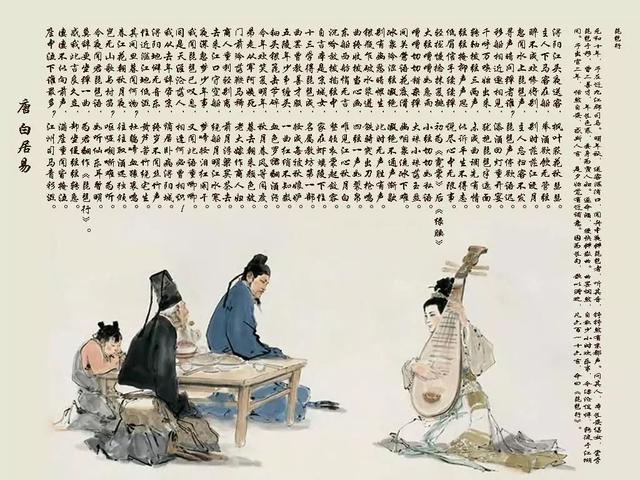 琵琶行
元和十年，予左迁九江郡司马。明年秋，送客湓浦口，闻舟中夜弹琵琶者，听其音，铮铮然有京都声。问其人，本长安倡女，尝学
琵琶于穆、曹二善才，年长色衰，委身为贾人妇。遂命酒，使快弹数曲。曲罢悯然，自叙少小时欢乐事，今漂沦憔悴，转徙于江湖
间。予出官二年，恬然自安，感斯人言，是夕始觉有迁谪意。因为长句，歌以赠之，凡六百一十六言，命曰《琵琶行》。
浔阳江头夜送客，枫叶荻花秋瑟瑟。
主人下马客在船，举酒欲饮无管弦。
醉不成欢惨将别，别时茫茫江浸月。
忽闻水上琵琶声，主人忘归客不发。
寻声暗问弹者谁？琵琶声停欲语迟。
移船相近邀相见，添酒回灯重开宴。
千呼万唤始出来，犹抱琵琶半遮面。
转轴拨弦三两声，未成曲调先有情。
弦弦掩抑声声思，似诉平生不得志。
低眉信手续续弹，说尽心中无限事。
轻拢慢捻抹复挑，初为《霓裳》后《绿腰》。
大弦嘈嘈如急雨，小弦切切如私语。
嘈嘈切切错杂弹，大珠小珠落玉盘。
间关莺语花底滑，幽咽泉流冰下难。
冰泉冷涩弦凝绝，凝绝不通声渐歇。
别有幽愁暗恨生，此时无声胜有声。
银瓶乍破水浆迸，铁骑突出刀枪鸣。
曲终收拨当心画，四弦一声如裂帛。
东船西舫悄无言，唯见江心秋月白。
沉吟放拨插弦中，整顿衣裳起敛容。
自言本是京城女，家在虾蟆陵下住。
十三学得琵琶成，名属教坊第一部。
曲罢曾教善才服，妆成每被秋娘妒。
五陵年少争缠头，一曲红绡不知数。
钿头银篦击节碎，血色罗裙翻酒污。
今年欢笑复明年，秋月春风等闲度。
弟走从军阿姨死，暮去朝来颜色故。
门前冷落车马稀，老大嫁作商人妇。
商人重利轻别离，前月浮梁买茶去。
去来江口守空船，绕船明月江水寒。
夜深忽梦少年事，梦啼妆泪红阑干。
我闻琵琶已叹息，又闻此语重唧唧。
同是天涯沦落人，相逢何必曾相识！
我从去年辞帝京，谪居卧病浔阳城。
浔阳地僻无音乐，终岁不闻丝竹声。
住近湓江地低湿，黄芦苦竹绕宅生。
其间旦暮闻何物？杜鹃啼血猿哀鸣。
春江花朝秋月夜，往往取酒还独倾。
岂无山歌与村笛？呕哑嘲哳难为听。
今夜闻君琵琶语，如听仙乐耳暂明。
莫辞更坐弹一曲，为君翻作《琵琶行》。
感我此言良久立，却坐促弦弦转急。
凄凄不似向前声，满座重闻皆掩泣。
座中泣下谁最多？江州司马青衫湿。
唐 白居易